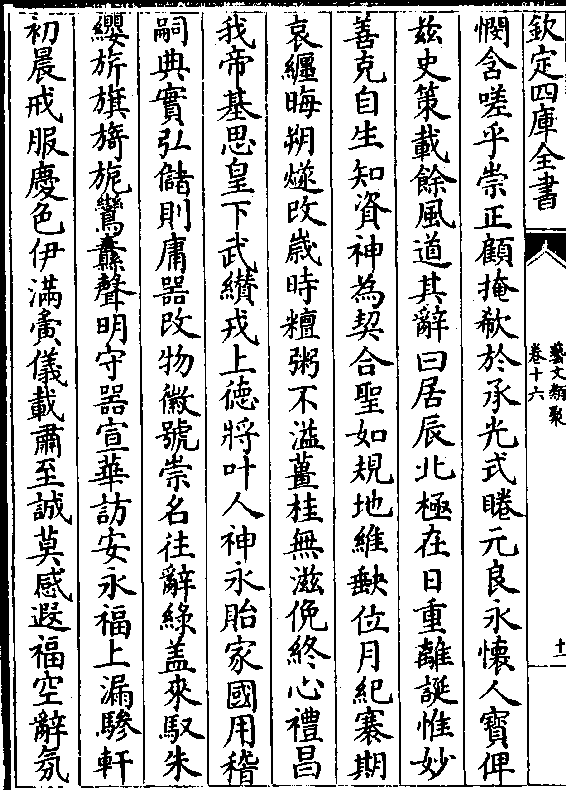 欽定四庫全書
藝文類聚
卷十六
十一
憫含嗟乎崇正顧掩欷於承光式睠元良永懷人寶俾
兹史策載餘風道其辭曰居辰北極在日重離誕惟妙
善克自生知資神為契合聖如規地維缺位月紀褰期
哀纒晦朔燧改嵗時饘粥不溢薑桂無滋俛終心禮昌
我帝基思皇下武纉戎上徳將叶人神永貽家國用稽
嗣典實弘儲則庸器改物徽號崇名往辭綠盖來馭朱
纓旂旗旖旎鸞纛聲明守器宣華訪安永福上漏驂軒
初晨戒服慶色伊滿夤儀載肅至誠莫感遐福空辭氛